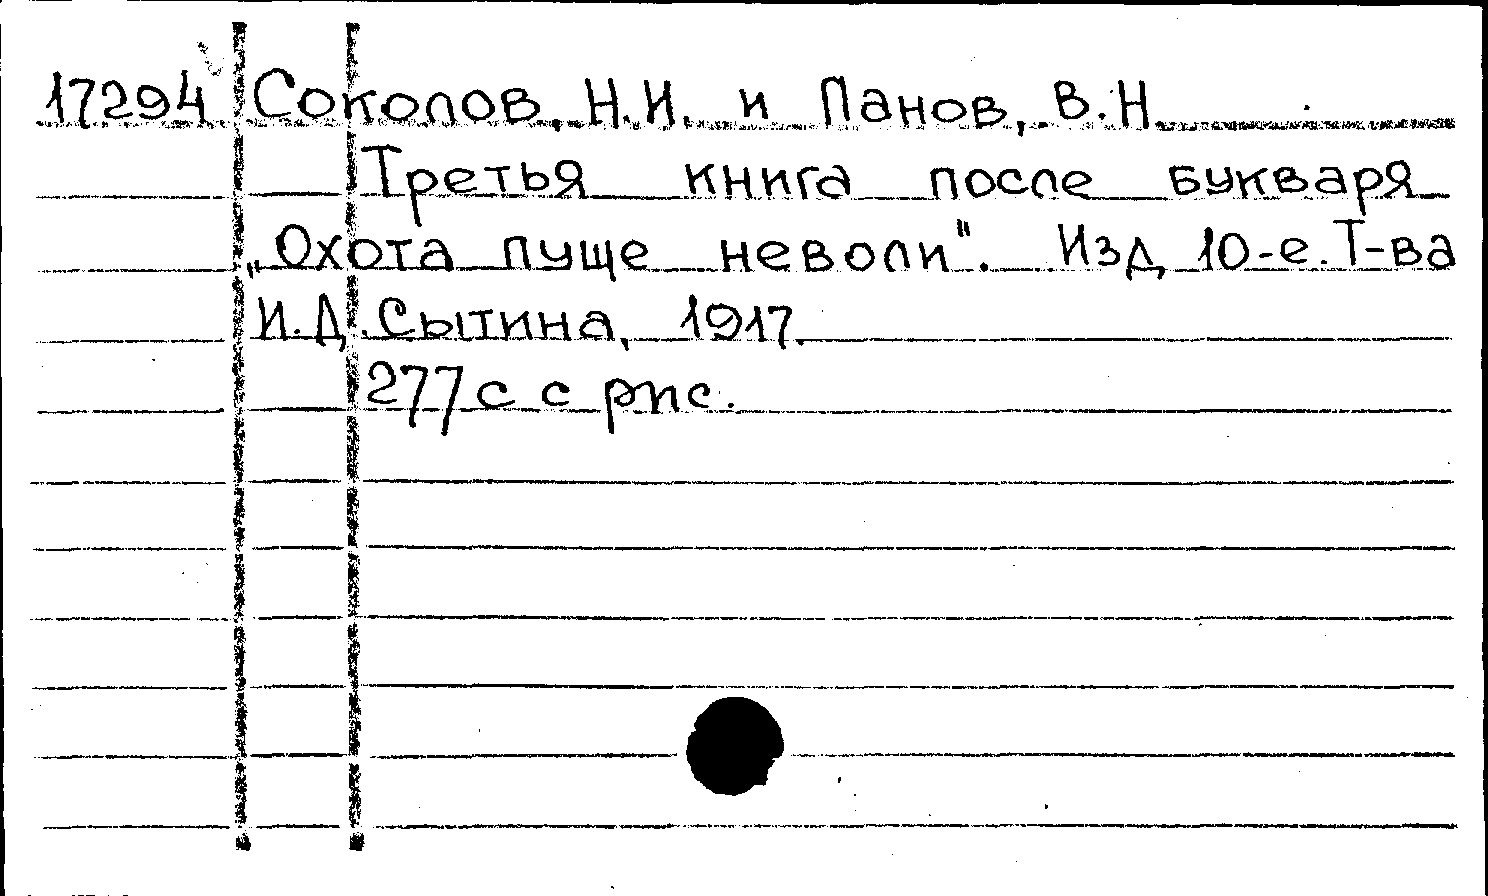 17294 Соколов, Н.И. и Панов, В.Н.
Третья книга после букваря
„Охота пуще неволи". Изд. 10-е. Т-ва
И.Д. Сытина, 1917.
277 с с рис.